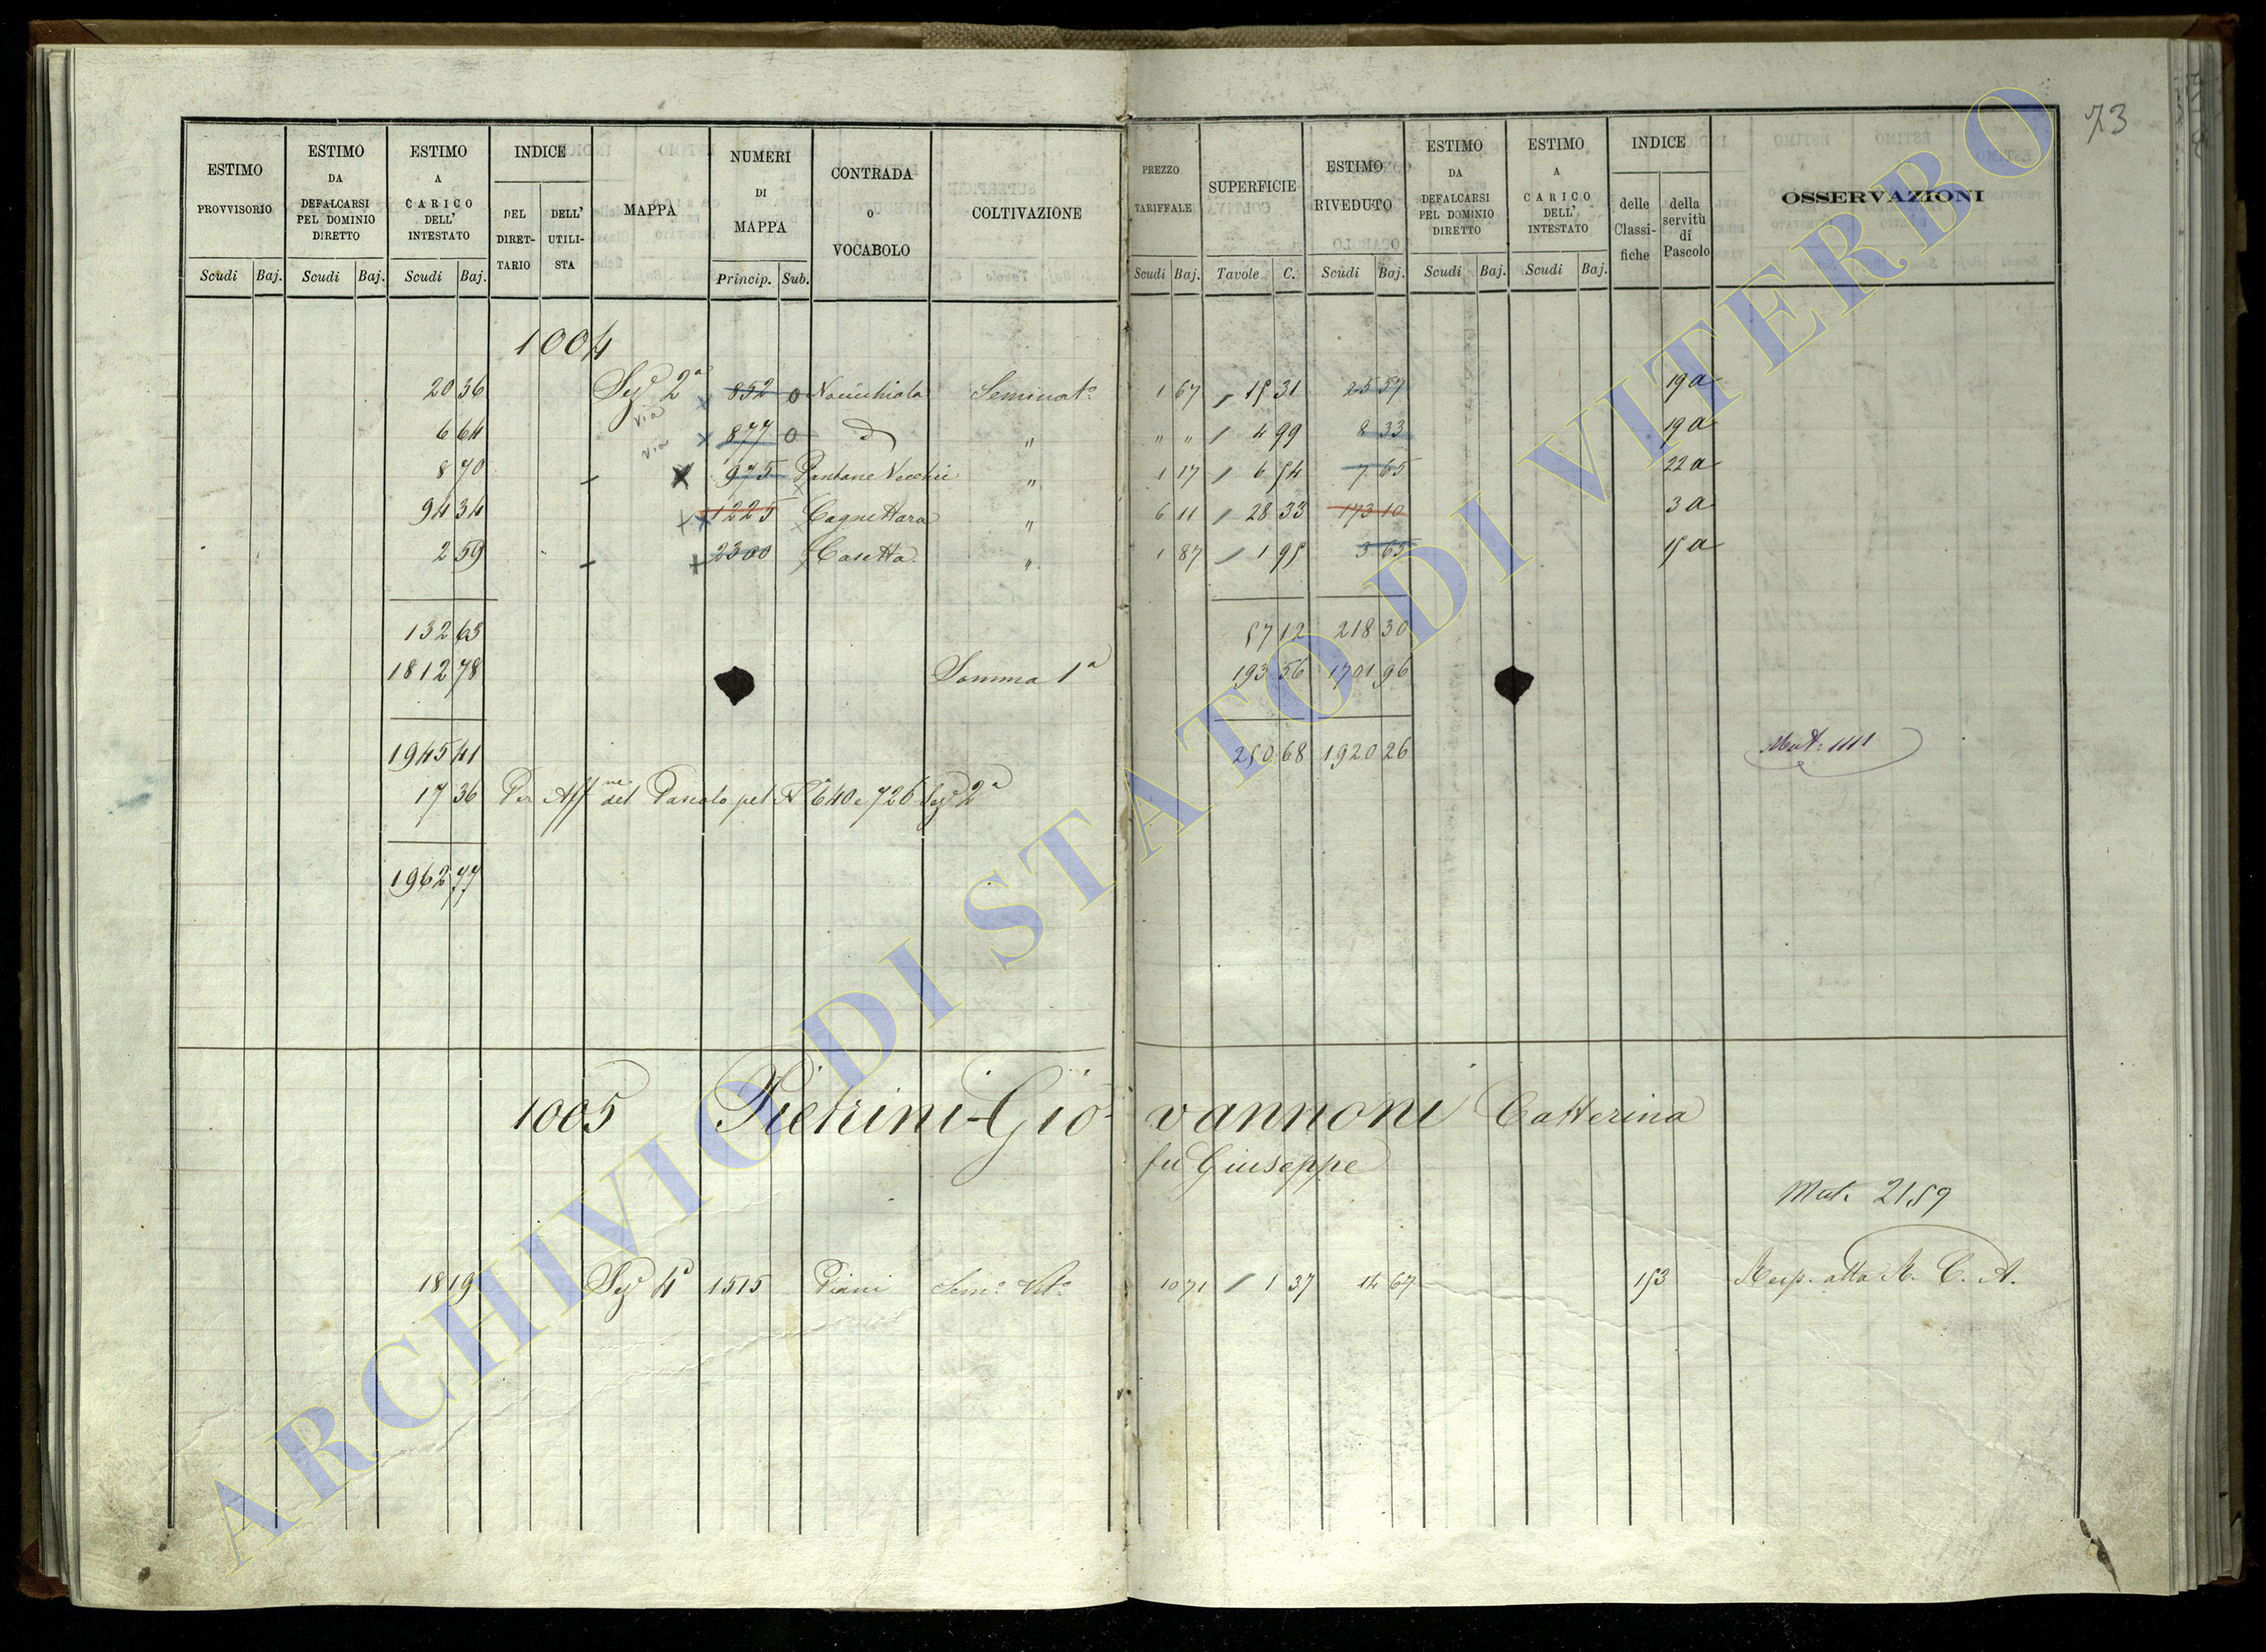 73
ESTIMO PROVVISORIO Scudi Baj.
ESTIMO DA DEFALCARSI PEL DOMINIO DIRETTO Scudi Baj.
ESTIMO A CARICO DELL' INTESTATO Scudi Baj.
INDICE DEL DIRET-TARIO DELL' UTILI-STA
MAPPA
NUMERI DI MAPPA Princip. Sub.
CONTRADA O VOCABOLO
COLTIVAZIONE
PREZZO TARIFFALE Scudi Baj.
SUPERFICIE Tavole C.
ESTIMO RIVEDUTO Scudi Baj.
ESTIMO DA DEFALCARSI PEL DOMINIO DIRETTO Scudi Baj.
ESTIMO A CARICO DELL' INTESTATO Scudi Baj.
INDICE delle Classi-fiche della servitù di Pascolo
OSSERVAZIONI
1004
20 36 Sez 2a 852 0 Nocchiola Seminato 1 67 / 15 31 25 57 19 a
via
6 64 877 0 d " " " / 4 99 8 33 19 a
via
8 70 975 Pantane Vecchie " 1 17 / 6 54 7 65 22 a
94 34 1225 Cagnettara " 6 11 / 28 33 173 10 3 a
2 59 2300 Casetta " 1 87 / 1 95 3 65 15 a
132 63 57 12 218 30
1812 78 Somma 1a 193 56 1701 96
1945 41 250 68 1920 26 Mut. 1111
17 36 Per Aff.ne del Pascolo pel N. 640 e 726 Sez 2a
1962 77
1005 Pierini-Giovannoni Catterina
fu Giuseppe
Mut. 2159
18 19 Sez 4a 1515 Piani Sem.o Vit.o 10 71 / 1 37 14 67 153 Risp. alla R. C. A.
ARCHIVIO DI STATO DI VITERBO